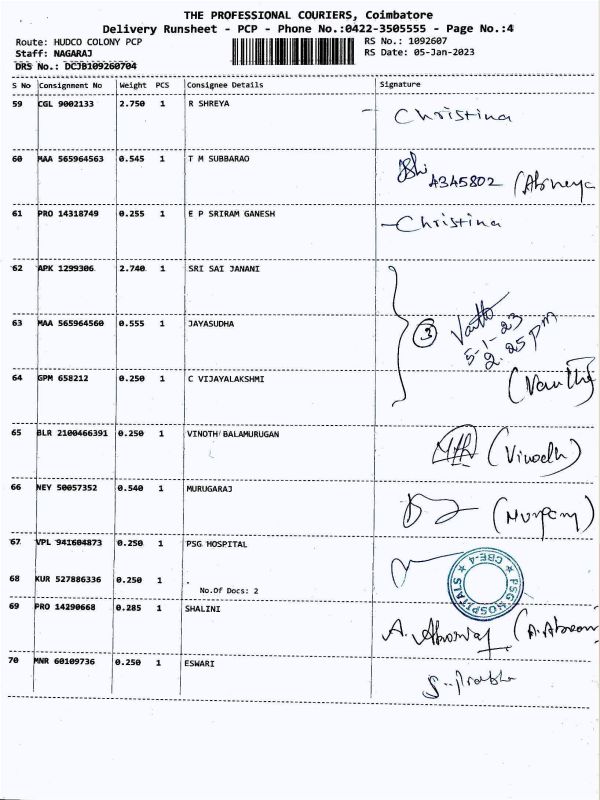 THE PROFESSIONAL COURIERS, Coimbatore
Delivery Runsheet - PCP - Phone No.:0422-3505555 - Page No.:4
Route: HUDCO COLONY PCP
RS No.: 1092607
Staff: NAGARAJ
RS Date: 05-Jan-2023
DRS No.: DCJB109260704
S No Consignment No Weight PCS Consignee Details Signature
59 CGL 9002133 2.750 1 R SHREYA
- Christina
60 MAA 565964563 0.545 1 T M SUBBARAO
A3A5802
61 PRO 14318749 0.255 1 E P SRIRAM GANESH
- Christina
62 APK 1299306 2.740 1 SRI SAI JANANI
63 MAA 565964560 0.555 1 JAYASUDHA
3
5-1-23
2.25 pm
64 GPM 658212 0.250 1 C VIJAYALAKSHMI
65 BLR 2100466391 0.250 1 VINOTH BALAMURUGAN
(Vinodh)
66 NEY 50057352 0.540 1 MURUGARAJ
67 VPL 941604873 0.250 1 PSG HOSPITAL
68 KUR 527886336 0.250 1
No.Of Docs: 2
PSG HOSPITAL STA CBE-4
69 PRO 14290668 0.285 1 SHALINI
70 MNR 60109736 0.250 1 ESWARI